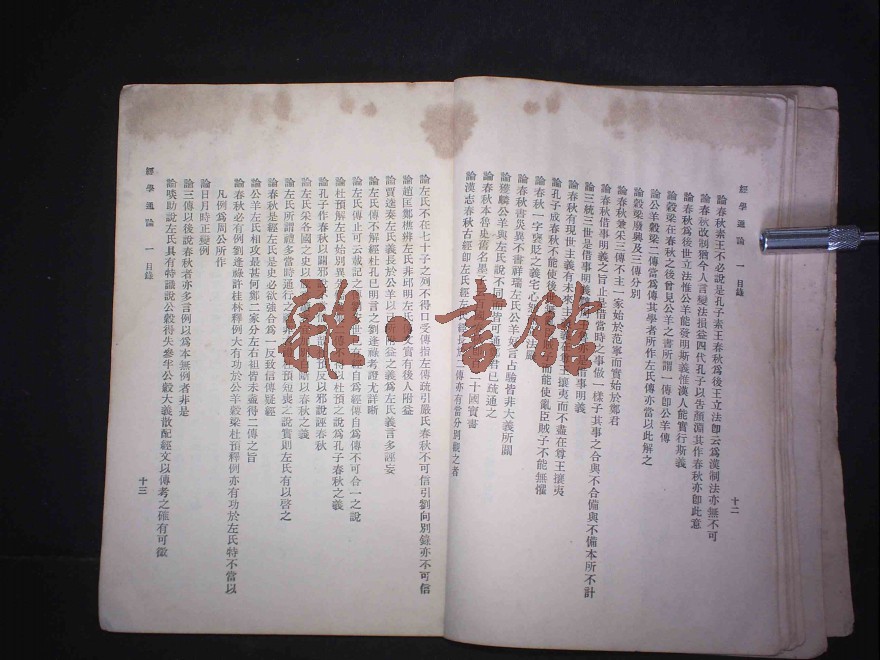 經學通論 一 目錄
十二
論春秋素王不必說是孔子素王春秋爲後王立法即云爲漢制法亦無不可
論春秋改制猶今人言變法損益四代孔子以告顏淵其作春秋亦即此意
論春秋爲後世立法惟公羊能發明斯義惟漢人能實行斯義
論穀梁在春秋之後曾見公羊之書所謂一傳即公羊傳
論公羊穀梁二傳當爲傳其學者所作左氏傳亦當以此解之
論穀梁廢興及三傳分別
論春秋兼采三傳不主一家始於范寗而實始於鄭君
論春秋借事明義之旨止是借當時之事做一樣子其事之合與不合備與不備本所不計
論三統三世是借事明義
論春秋有現世主義有未來主義
攘夷而不盡在尊王攘夷
論孔子成春秋不能使後世
而能使亂臣賊子不能無懼
論春秋一字褒貶之義宅心
論春秋書災異不書祥瑞左氏公羊好言占驗皆非大義所關
論獲麟公羊與左氏說不同
皆可通
君已疏通之
論春秋本魯史舊名墨子
十國寶書
論漢志春秋古經即左氏經
亦有當分別觀之者
論左氏不在七十子之列不得口受傳指左傳疏引嚴氏春秋不可信引劉向別錄亦不可信
論趙匡鄭樵辨左氏非邱明左氏
文實有後人附益
論賈逵奏左氏義長於公羊以
附益之義爲左氏義言多誣妄
論左氏傳不解經杜孔已明言之劉逢祿考證尤詳晰
論左氏傳止可云載記之
自爲經傳自爲傳不可合一之說
論杜預解左氏始別異
不得以杜預之說爲孔子春秋之義
論孔子作春秋以闢邪
反以邪說誣春秋
論左氏采各國之史以
以春秋之義
論左氏所謂禮多當時通行
杜預短喪之說實則左氏有以啓之
論春秋是經左氏是史必欲強合爲一反致信傳疑經
論公羊左氏相攻最甚何鄭二家分左右袒皆未盡得二傳之旨
論春秋必有例劉逢祿許桂林釋例大有功於公羊穀梁杜預釋例亦有功於左氏特不當以
凡例爲周公所作
論日月時正變例
論三傳以後說春秋者亦多言例以爲本無例者非是
論啖助說左氏具有特識說公穀得失參半公穀大義散配經文以傳考之確有可徵
經學通論 一 目錄
十三
雜·書館